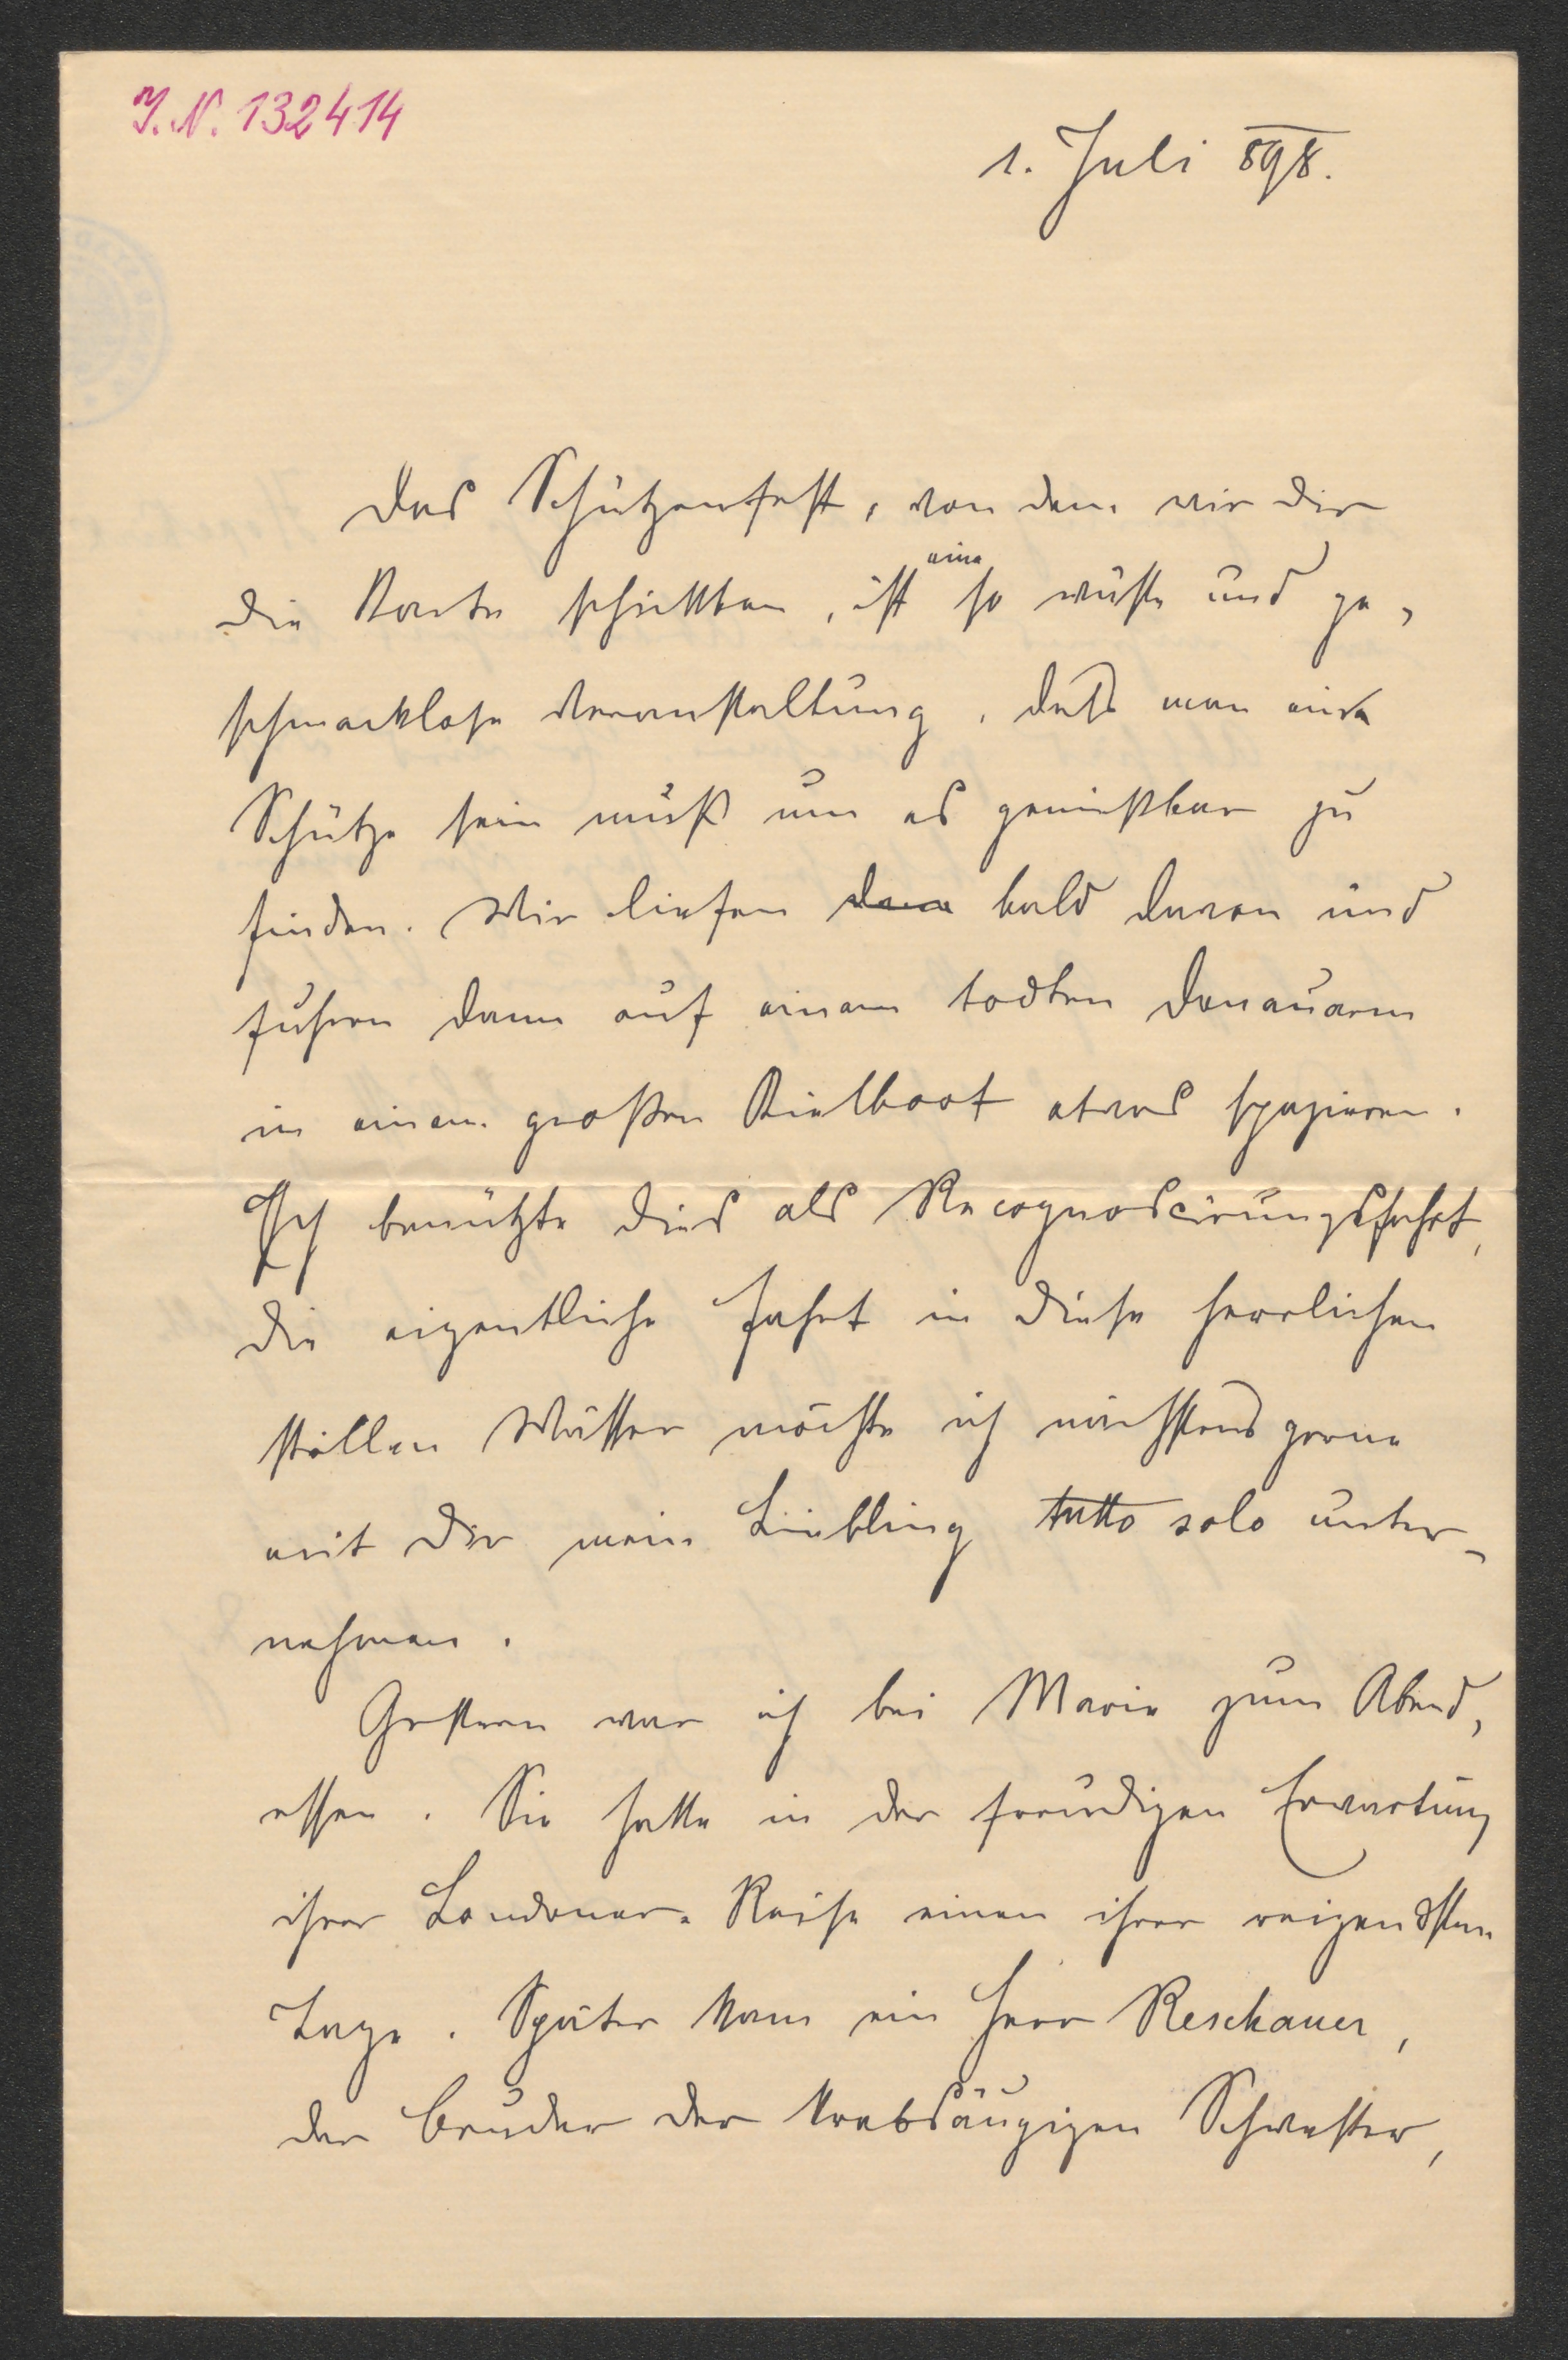 I. N. 132414
1. Juli 898.
Das Schützenfest, von dem wir dir
die Karte schickten, ist eine so wüste und ge-
schmacklose Veranstaltung, daß man ein
Schütze sein muß um es genießbar zu
finden. Wir liefen bald davon und
fuhren dann auf einem todten Donauarm
in einem großen Kielboot etwas spazieren.
Ich benützte dies als Recognoscirungsfahrt,
die eigentliche Fahrt in diese herrlichen
stillen Wässer möchte ich nächstens gerne
mit Dir mein Liebling tutto solo unter-
nehmen.
Gestern war ich bei Marie zum Abend-
essen. Sie hatte in der freudigen Erwartung
ihrer Londoner-Reise einen ihrer reizendsten
Tage. Später kam ein Herr Reschauer,
der Bruder der krebsäugigen Schwester,